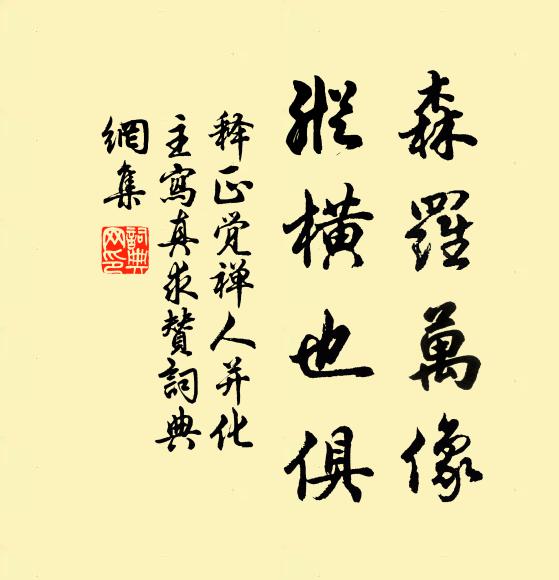 森羅萬像
縱橫也俱
释正觉禅人并化
主寫真求赞詞典
網集
詞典
网印